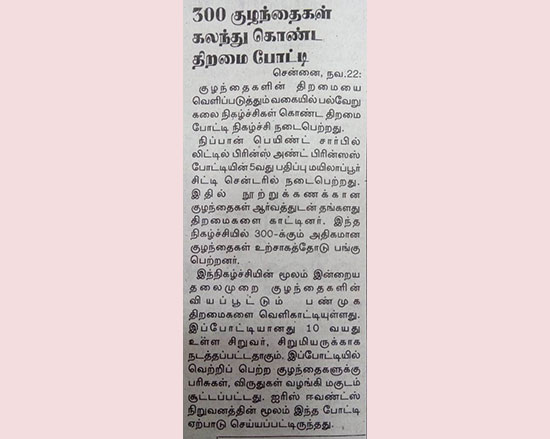 300 குழந்தைகள்
கலந்து கொண்ட
திறமை போட்டி
சென்னை, நவ.22:
குழந்தைகளின் திறமையை
வெளிப்படுத்தும் வகையில் பல்வேறு
கலை நிகழ்ச்சிகள் கொண்ட திறமை
போட்டி நிகழ்ச்சி நடைபெற்றது.
நிப்பான் பெயிண்ட் சார்பில்
லிட்டில் பிரின்ஸ் அண்ட் பிரின்ஸஸ்
போட்டியின் 5வது பதிப்பு மயிலாப்பூர்
சிட்டி சென்டரில் நடைபெற்றது.
இதில் நூற்றுக்கணக்கான
குழந்தைகள் ஆர்வத்துடன் தங்களது
திறமைகளை காட்டினர். இந்த
நிகழ்ச்சியில் 300-க்கும் அதிகமான
குழந்தைகள் உற்சாகத்தோடு பங்கு
பெற்றனர்.
இந்நிகழ்ச்சியின் மூலம் இன்றைய
தலைமுறை குழந்தைகளின்
வியப்பூட்டும் பண்முக
திறமைகளை வெளிகாட்டியுள்ளது.
இப்போட்டியானது 10 வயது
உள்ள சிறுவர், சிறுமியருக்காக
நடத்தப்பட்டதாகும். இப்போட்டியில்
வெற்றிப் பெற்ற குழந்தைகளுக்கு
பரிசுகள், விருதுகள் வழங்கி மகுடம்
சூட்டப்பட்டது. ஐரிஸ் ஈவண்ட்ஸ்
நிறுவனத்தின் மூலம் இந்த போட்டி
ஏற்பாடு செய்யப்பட்டிருந்தது.